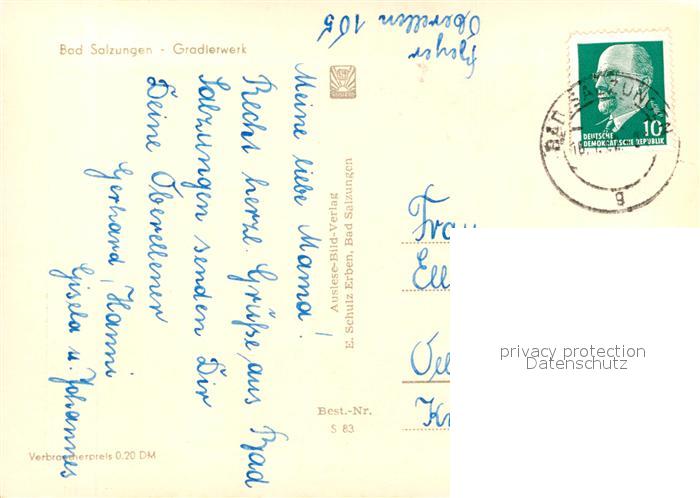 Bad Salzungen - Gradierwerk
Meine liebe Mama!
Recht herzl. Grüße aus Bad
Salzungen senden Dir
Deine Oberellener
Gerhard, Hanni
Gisela u. Johannes
Verbraucherpreis 0.20 DM
Oberellen 105
Auslese-Bild-Verlag
E. Schulz Erben, Bad Salzungen
Best.-Nr.
S 83
10
DEUTSCHE
DEMOKRATISCHE REPUBLIK
BAD SALZUNGEN
g
Frau
Ell
privacy protection
Datenschutz